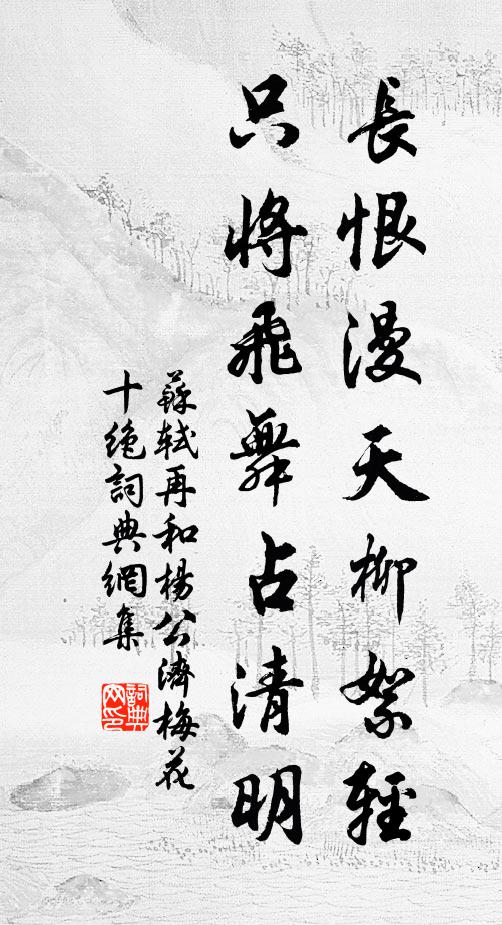 長恨漫天柳絮輕
只將飛舞占清明
蘇軾再和楊公濟梅花
十絶詞典網集
詞典网印